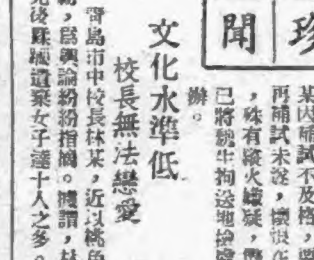 珍聞
某因補試不及格，
再補試未，懷恨在
，殊有縱火嫌疑，
已將魏生拘送地檢處
辦。
文化水準低
校長無法戀愛
青島市中校長林某，近以桃色
，爲輿論紛紛指摘。據謂，林
後蹂躪遺棄女子達十人之多。